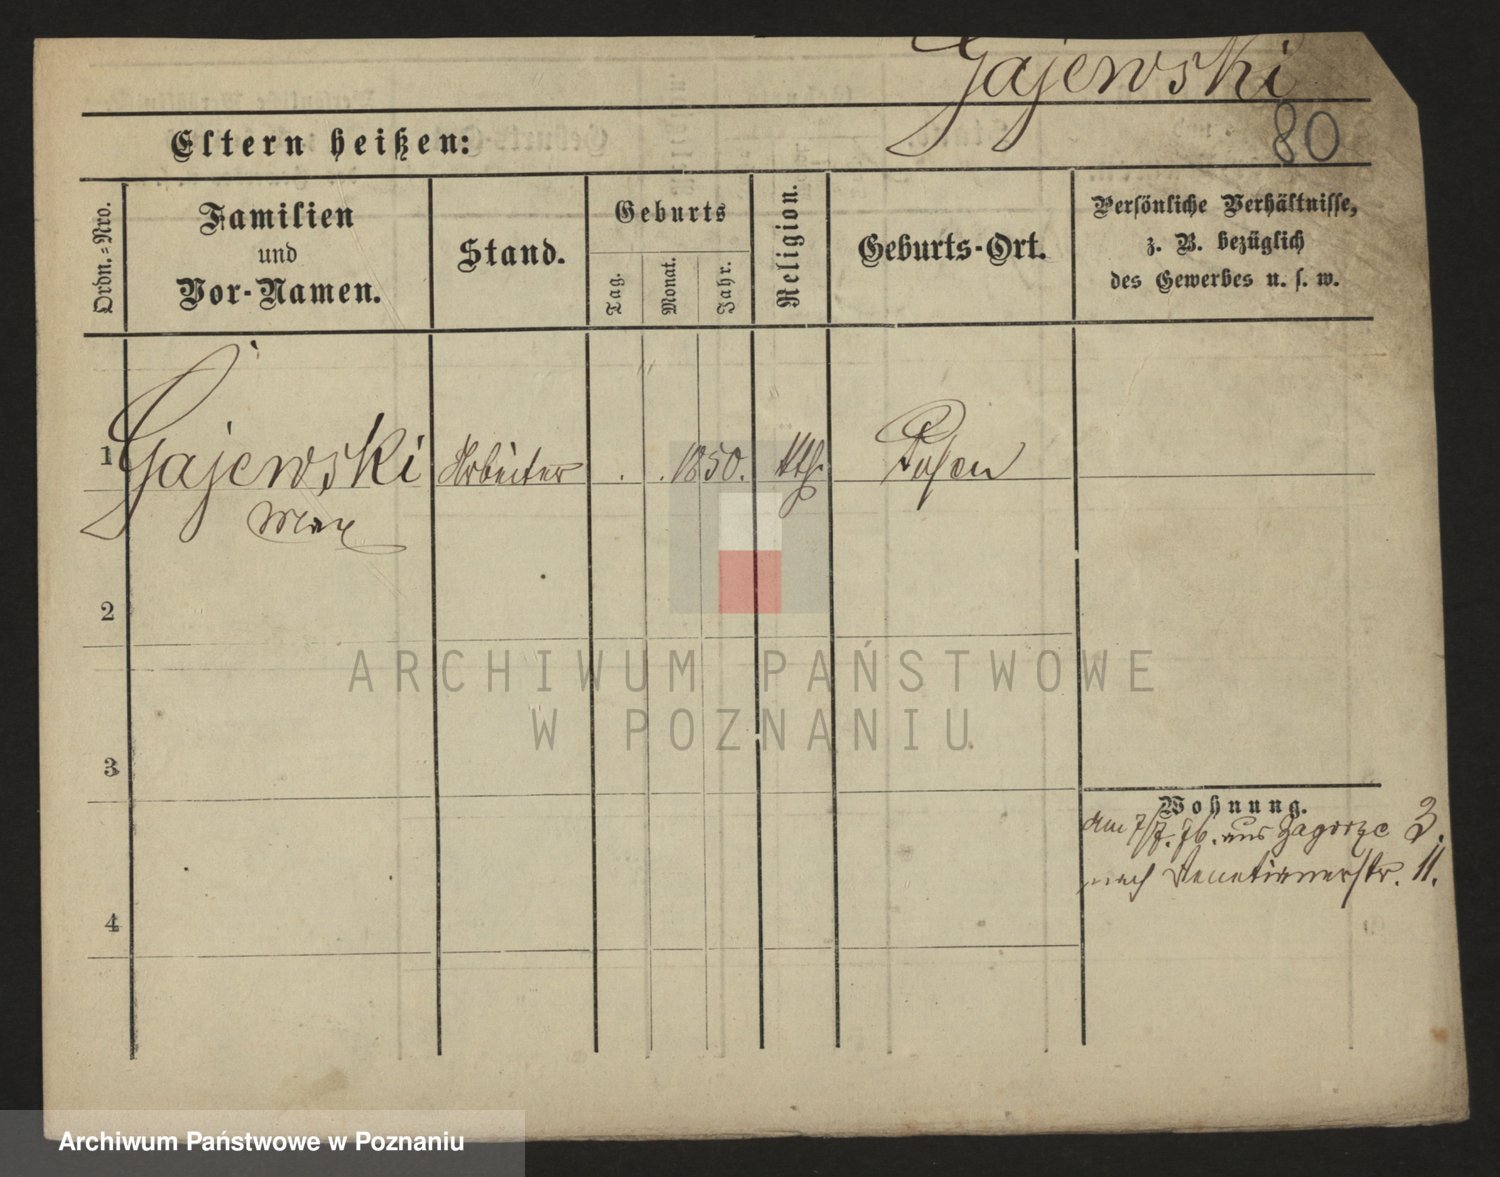 Gajewski
80
Eltern heißen:
Ordn.-Nro.
Familien
und
Vor-Namen.
Stand.
Geburts
Tag.
Monat.
Jahr.
Religion.
Geburts-Ort.
Persönliche Verhältnisse,
z. B. bezüglich
des Gewerbes u. s. w.
1 Gajewski Arbeiter . . 1850. kth. Posen
Max
2
3
4
Wohnung.
Am 7/7. 76. aus Zagorze 3.
nach Venetianerstr. 11.
ARCHIWUM PAŃSTWOWE
W POZNANIU
Archiwum Państwowe w Poznaniu